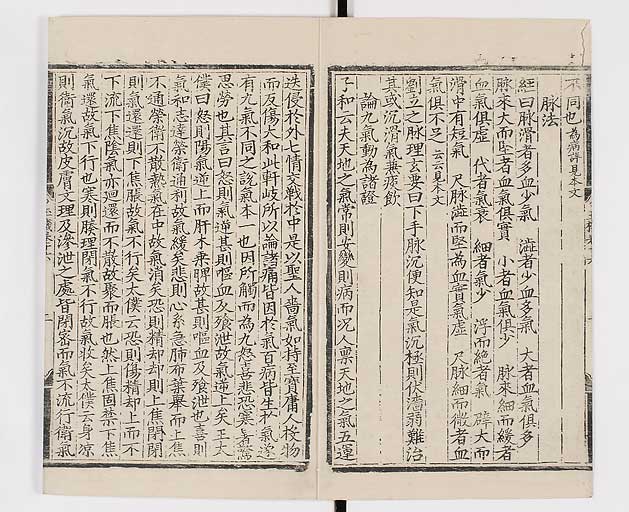 不同也 為病詳見本文
脉法
經曰脉滑者多血少氣 濇者少血多氣 大者血氣俱多
脉來大而堅者血氣俱實 小者血氣俱少 脉來細而緩者
血氣俱虛 代者氣衰 細者氣少 浮而絶者氣 辟大而
滑中有短氣 尺脉濇而堅為血實氣虛 尺脉細而微者血
氣俱不足 云云見本文
劉立之脉理玄要曰下手脉沉便知是氣沉極則伏濇弱難治
其或沉滑氣兼痰飲
論九氣動為諸證
子和云夫天地之氣常則安變則病而況人禀天地之氣五運
迭侵於外七情交戰於中是以聖人嗇氣如持至寶庸人役物
而反傷大和此軒岐所以論諸痛皆因於氣百病皆生於氣遂
有九氣不同之說氣本一也因所觸而為九怒喜悲恐寒
思勞也其言曰怒則氣逆甚則嘔血及飱泄故氣逆上矣王太
僕曰怒則陽氣逆上而肝木乘脾故甚則嘔血及飱泄也喜則
氣和志達榮衛通利故氣緩矣悲則心系急肺布葉舉而上焦
不通榮衛不散熱氣在中故氣消矣恐則精却却則上焦閉閉
則氣還還則下焦脹故氣不行矣太僕云恐則傷精却上而不
下流下焦陰氣亦迴還而不散故聚而脹也然上焦固禁下焦
氣還故氣不行也寒則腠理閉氣不行故氣收矣太僕云身凉
則衛氣沉故皮膚文理及滲泄之處皆閉密而氣不流行衛氣